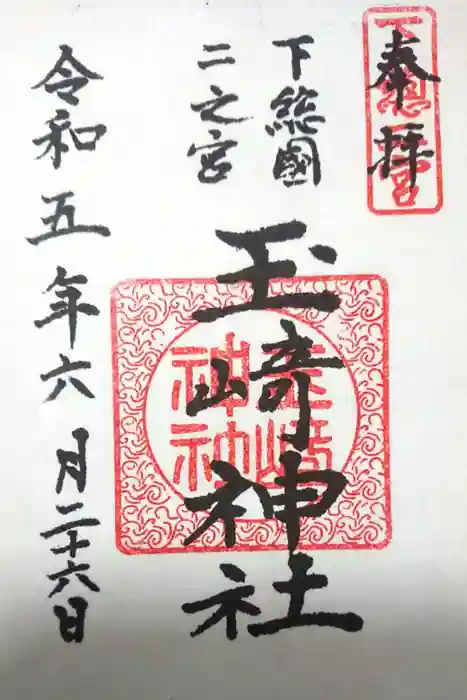 奉拝
下総國
二之宮
玉崎神社
令和五年六月二十六日